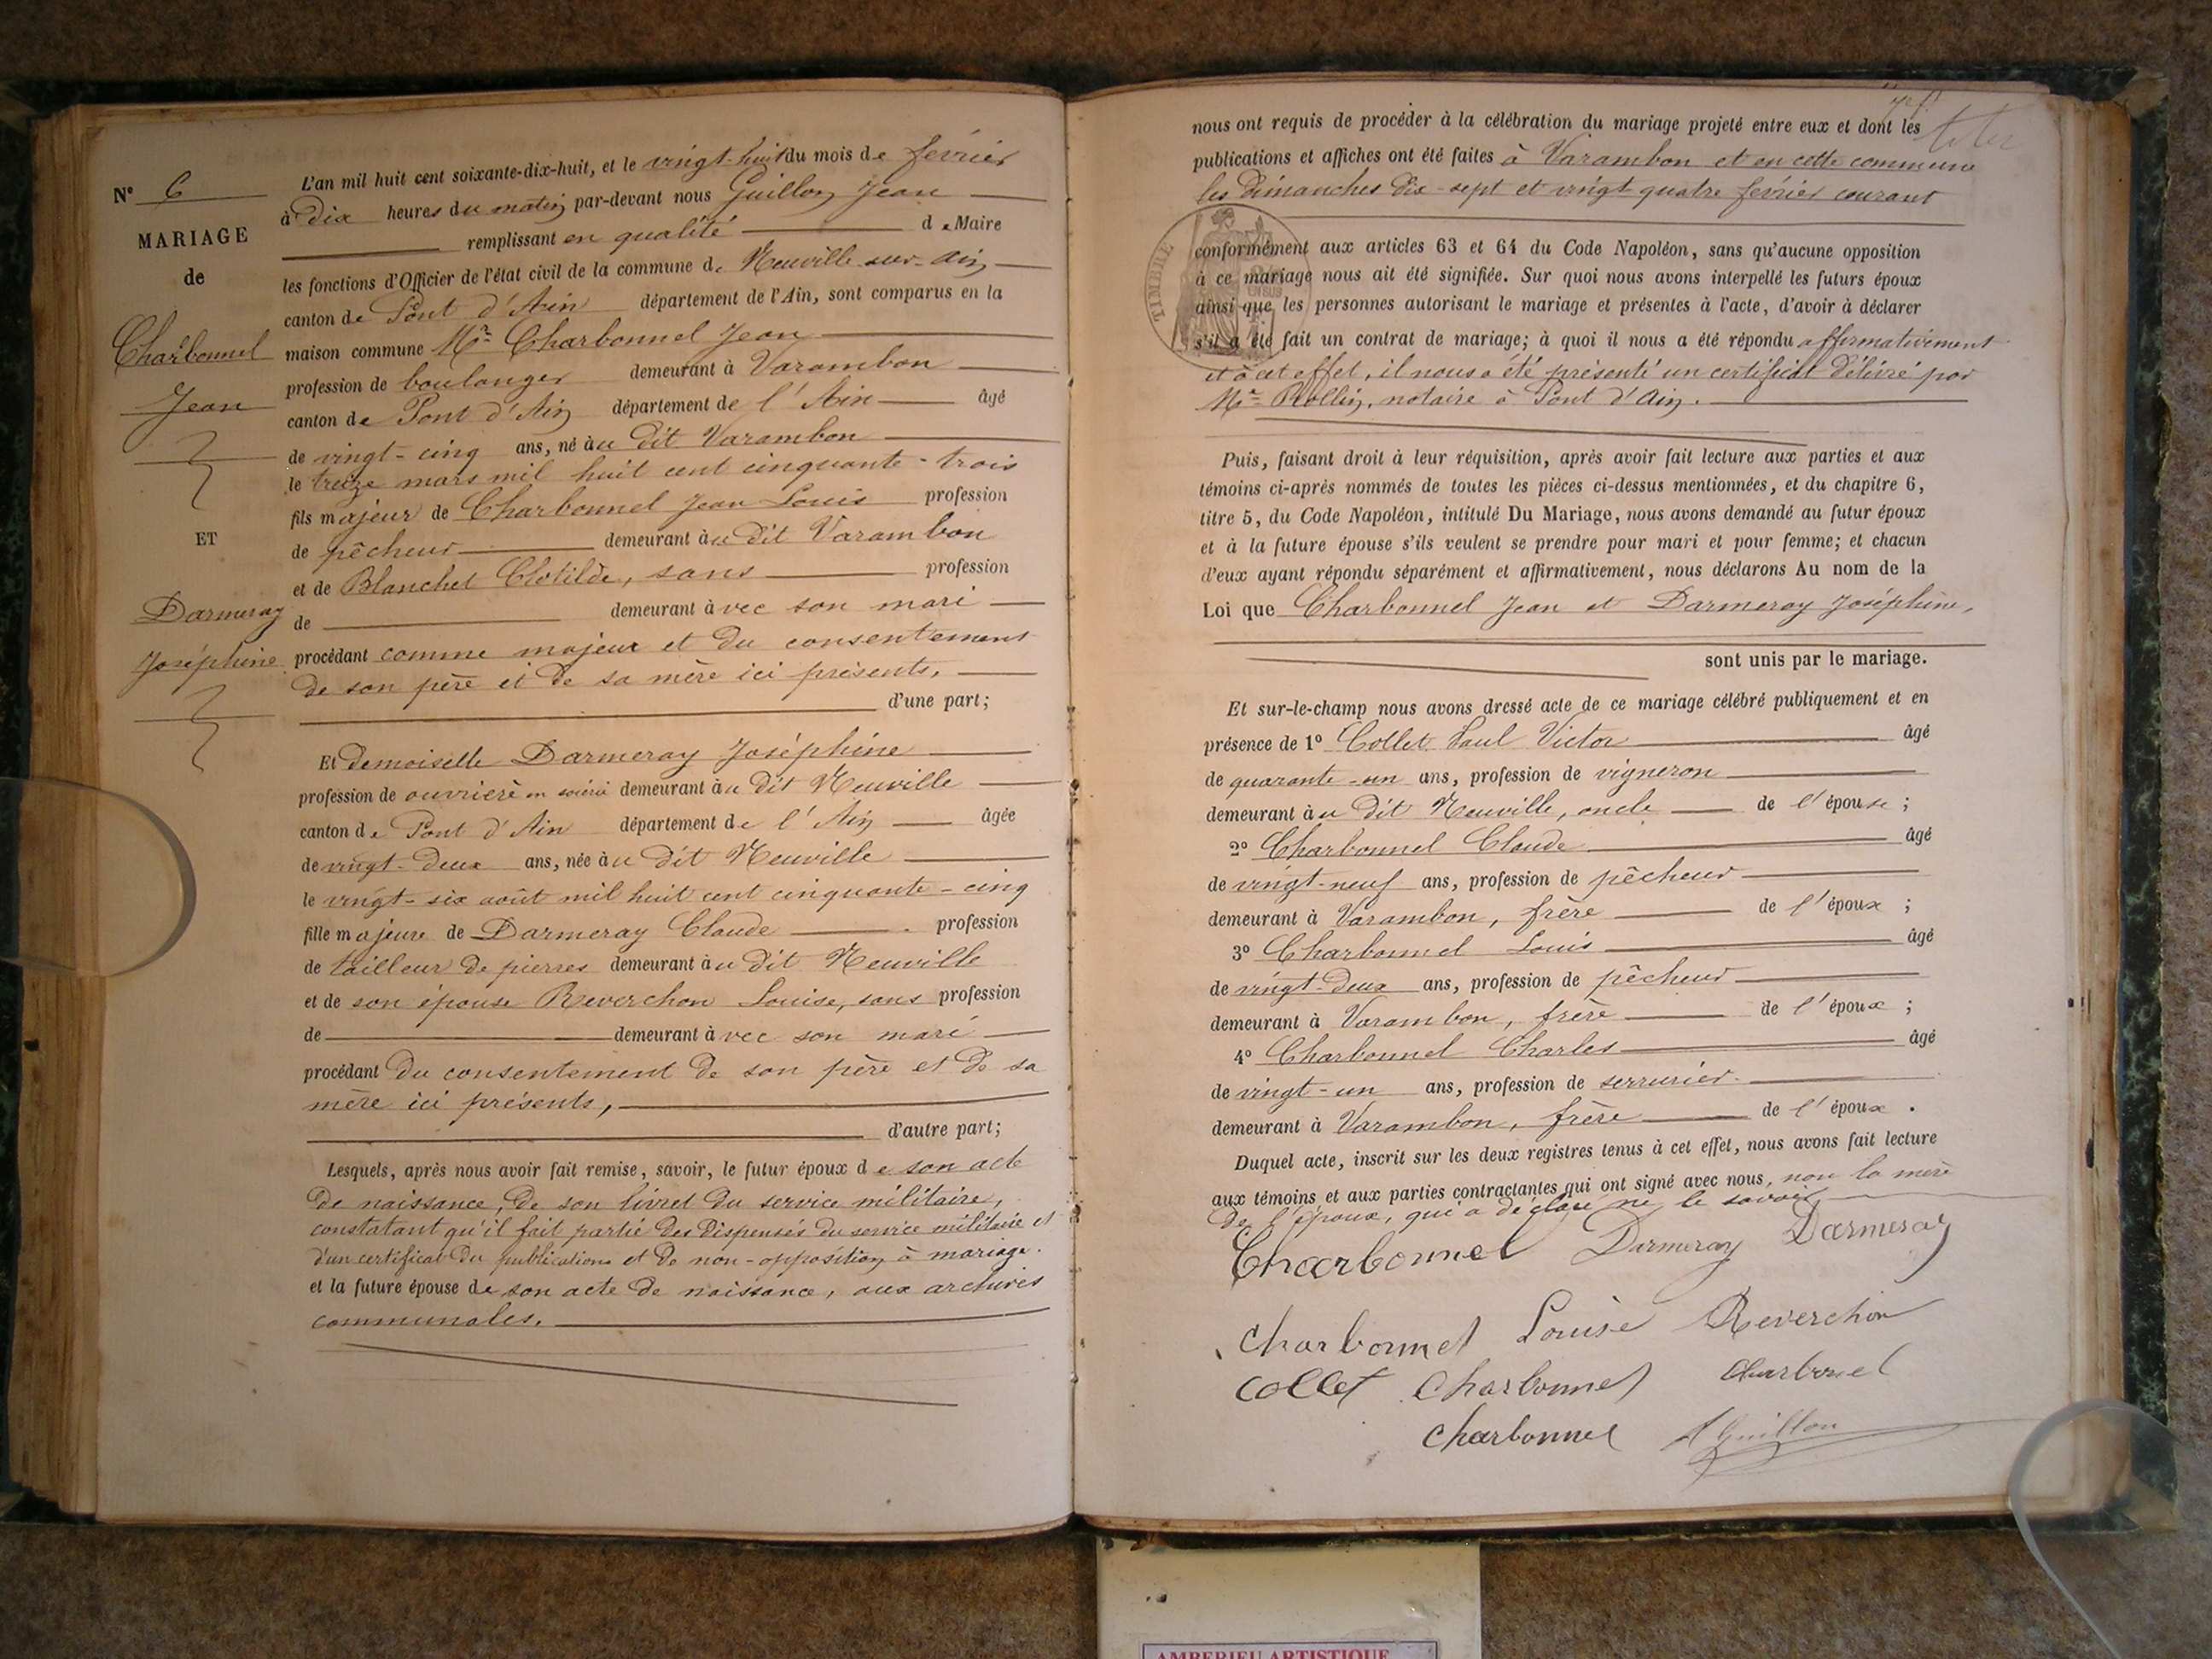 N° 6
MARIAGE
de
Charbonnel
Jean
ET
Darmeray
Joséphine
L'an mil huit cent soixante-dix-huit, et le vingt-huit du mois de février
à dix heures du matin par-devant nous Guillon Jean
remplissant en qualité de Maire
les fonctions d'Officier de l'état civil de la commune de Neuville-sur-Ain
canton de Pont d'Ain département de l'Ain, sont comparus en la
maison commune Mr Charbonnel Jean
profession de boulanger demeurant à Varambon
canton de Pont d'Ain département de l'Ain âgé
de vingt-cinq ans, né à u dit Varambon
le treize mars mil huit cent cinquante-trois
fils majeur de Charbonnel Jean Louis profession
de pêcheur demeurant à u dit Varambon
et de Blanchet Clotilde, sans profession
de demeurant à vec son mari
procédant comme majeur et du consentement
de son père et de sa mère ici présents,
d'une part;
Et demoiselle Darmeray Joséphine
profession de ouvrière en soierie demeurant à u dit Neuville
canton de Pont d'Ain département de l'Ain âgée
de vingt-deux ans, née à u dit Neuville
le vingt-six août mil huit cent cinquante-cinq
fille majeure de Darmeray Claude profession
de tailleur de pierres demeurant à u dit Neuville
et de son épouse Reverchon Louise, sans profession
de demeurant à vec son mari
procédant du consentement de son père et de sa
mère ici présents,
d'autre part;
Lesquels, après nous avoir fait remise, savoir, le futur époux de son acte
de naissance, de son livret du service militaire,
constatant qu'il fait partie des dispensés du service militaire et
d'un certificat de publications et de non-opposition à mariage.
et la future épouse de son acte de naissance, aux archives
communales.
nous ont requis de procéder à la célébration du mariage projeté entre eux et dont les
publications et affiches ont été faites à Varambon et en cette commune
les dimanches dix-sept et vingt-quatre février courant
TIMBRE
conformément aux articles 63 et 64 du Code Napoléon, sans qu'aucune opposition
à ce mariage nous ait été signifiée. Sur quoi nous avons interpellé les futurs époux
ainsi que les personnes autorisant le mariage et présentes à l'acte, d'avoir à déclarer
s'il a été fait un contrat de mariage; à quoi il nous a été répondu affirmativement
et à cet effet, il nous a été présenté un certificat délivré par
Mr Rollin, notaire à Pont d'Ain.
Puis, faisant droit à leur réquisition, après avoir fait lecture aux parties et aux
témoins ci-après nommés de toutes les pièces ci-dessus mentionnées, et du chapitre 6,
titre 5, du Code Napoléon, intitulé Du Mariage, nous avons demandé au futur époux
et à la future épouse s'ils veulent se prendre pour mari et pour femme; et chacun
d'eux ayant répondu séparément et affirmativement, nous déclarons Au nom de la
Loi que Charbonnel Jean et Darmeray Joséphine,
sont unis par le mariage.
Et sur-le-champ nous avons dressé acte de ce mariage célébré publiquement et en
présence de 1° Collet Paul Victor âgé
de quarante-un ans, profession de vigneron
demeurant à u dit Neuville, oncle de l'épouse;
2° Charbonnel Claude âgé
de vingt-neuf ans, profession de pêcheur
demeurant à Varambon, frère de l'époux;
3° Charbonnel Louis âgé
de vingt-deux ans, profession de pêcheur
demeurant à Varambon, frère de l'époux;
4° Charbonnel Charles âgé
de vingt-un ans, profession de serrurier
demeurant à Varambon, frère de l'époux.
Duquel acte, inscrit sur les deux registres tenus à cet effet, nous avons fait lecture
aux témoins et aux parties contractantes qui ont signé avec nous, non la mère
de l'époux, qui a déclaré ne le savoir
Charbonnel Darmeray Darmeray
Charbonnel Louise Reverchon
Collet Charbonnel Charbonel
Charbonnel Guillon
AMBERIEU ARTISTIQUE